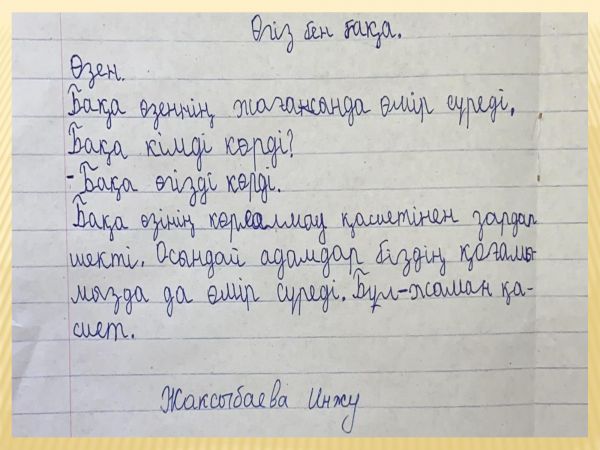 Өгіз бен бақа.
Өзен.
Бақа өзеннің жағажанда өмір сүреді.
Бақа кімді көрді?
- Бақа өгізді көрді.
Бақа өзінің көреалмау қасиетінен зардап
шекті. Осындай адамдар біздің қоғамы-
мызда да өмір сүреді. Бұл-жаман қа-
сиет.
Жаксыбаева Инжу